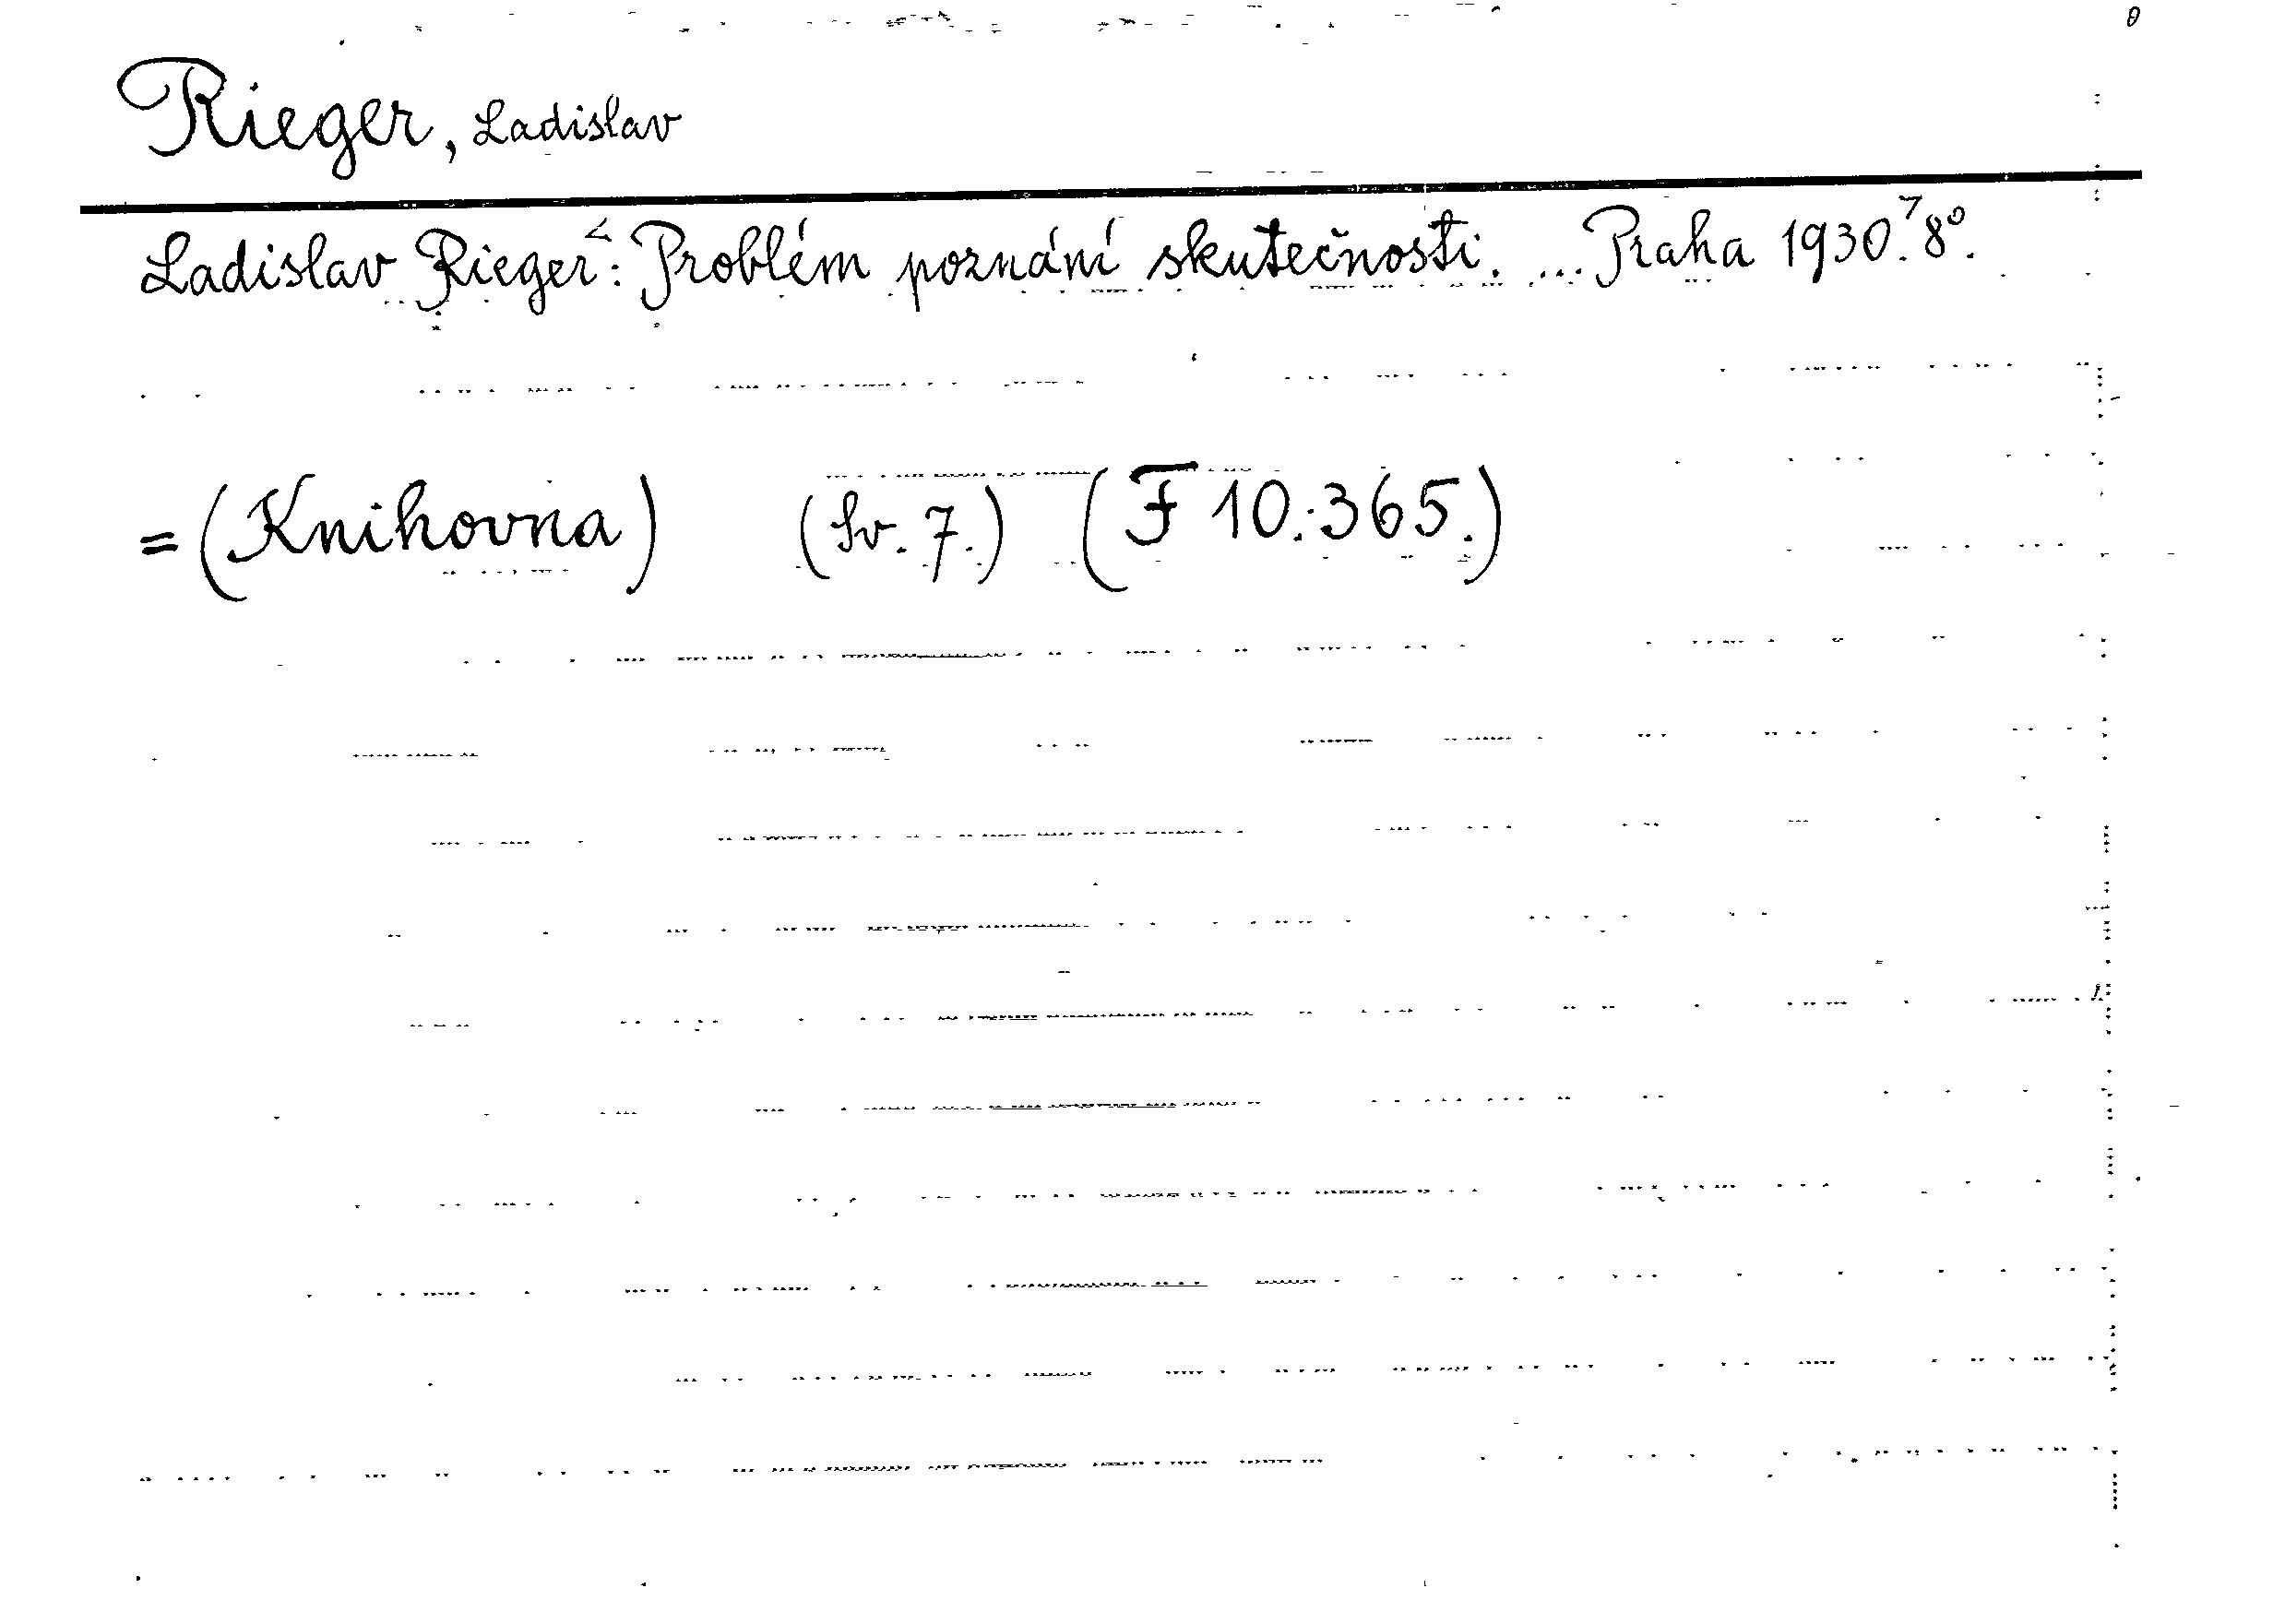 Rieger, Ladislav
Ladislav Rieger: Problém poznání skutečnosti. ... Praha 1930. 8°.
= (Knihovna) (Sv. 7.) (F 10.365.)